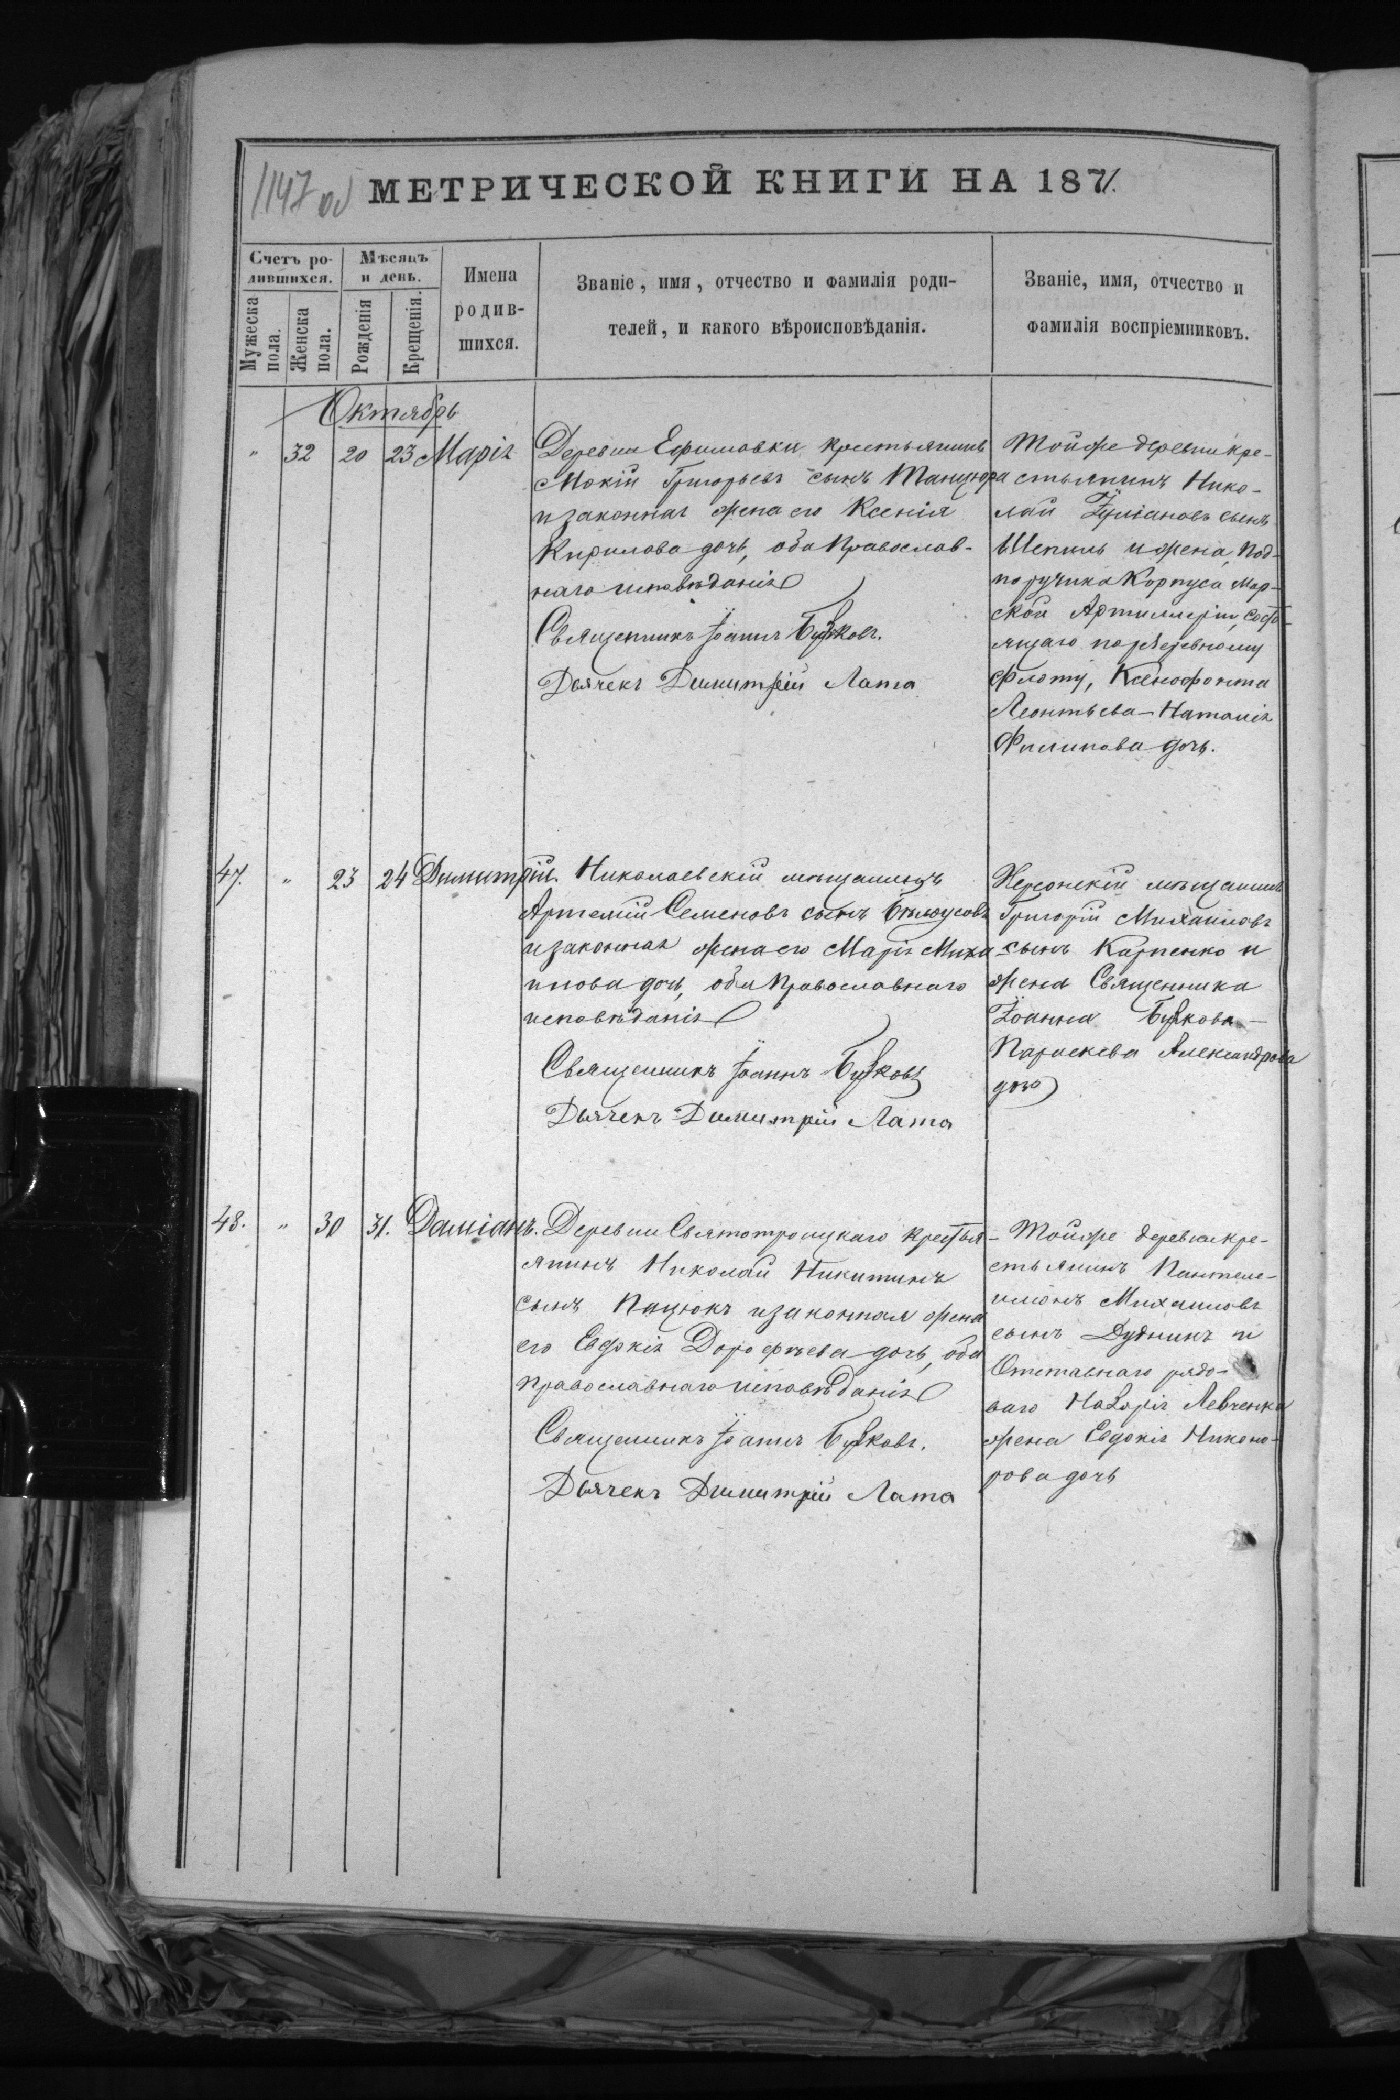 1147 об
МЕТРИЧЕСКОЙ КНИГИ НА 1871.
Счетъ ро-
дившихся.
Мужеска
пола.
Женска
пола.
Мѣсяцъ
и день.
Рожденія
Крещенія.
Имена
родив-
шихся.
Званіе, имя, отчество и фамилія роди-
телей, и какого вѣроисповѣданія.
Званіе, имя, отчество и
фамилія воспріемниковъ.
Октябрь
" 32 20 23 Марія
Деревни Ефимовки крестьянинъ
Мокій Григорьевъ сынъ Танцюра
и законная жена его Ксенія
Кирилова дочь, оба Православ-
наго исповѣданія
Священникъ Іоаннъ Бужковъ.
Дьячекъ Димитрій Лата
Тойже деревни кре-
стьянинъ Нико-
лай Іуліановъ сынъ
Шепиль и жена, Под-
поручика Корпуса Мор-
ской Артиллеріи, состо-
ящаго по резервному
флоту, Ксенофонта
Леонтьева - Наталія
Филипова дочь.
47. " 23 24 Димитрій.
Николаевскій мѣщанинъ
Артемій Семеновъ сынъ Бѣлоусовъ
и законная жена его Марія Миха
илова дочь, оба Православнаго
исповѣданія
Священникъ Іоаннъ Бужковъ
Дьячекъ Димитрій Лата
Херсонскій мѣщанинъ
Григорій Михаиловъ
сынъ Карпенко и
жена Священника
Іоанна Бужкова -
Параскева Александрова
дочь
48. " 30 31. Даміанъ.
Деревни Святотроицкаго крестья-
янинъ Николай Никитинъ
сынъ Пацюкъ и законная жена
его Евдокія Дорофѣева дочь, оба
православнаго исповѣданія
Священникъ Іоаннъ Бужковъ.
Дьячекъ Димитрій Лата
Тойже деревни кре-
стьянинъ Пантеле-
имонъ Михаиловъ
сынъ Дудникъ и
Отставнаго рядо-
ваго Назарія Левченка
жена Евдокія Никано-
рова дочь